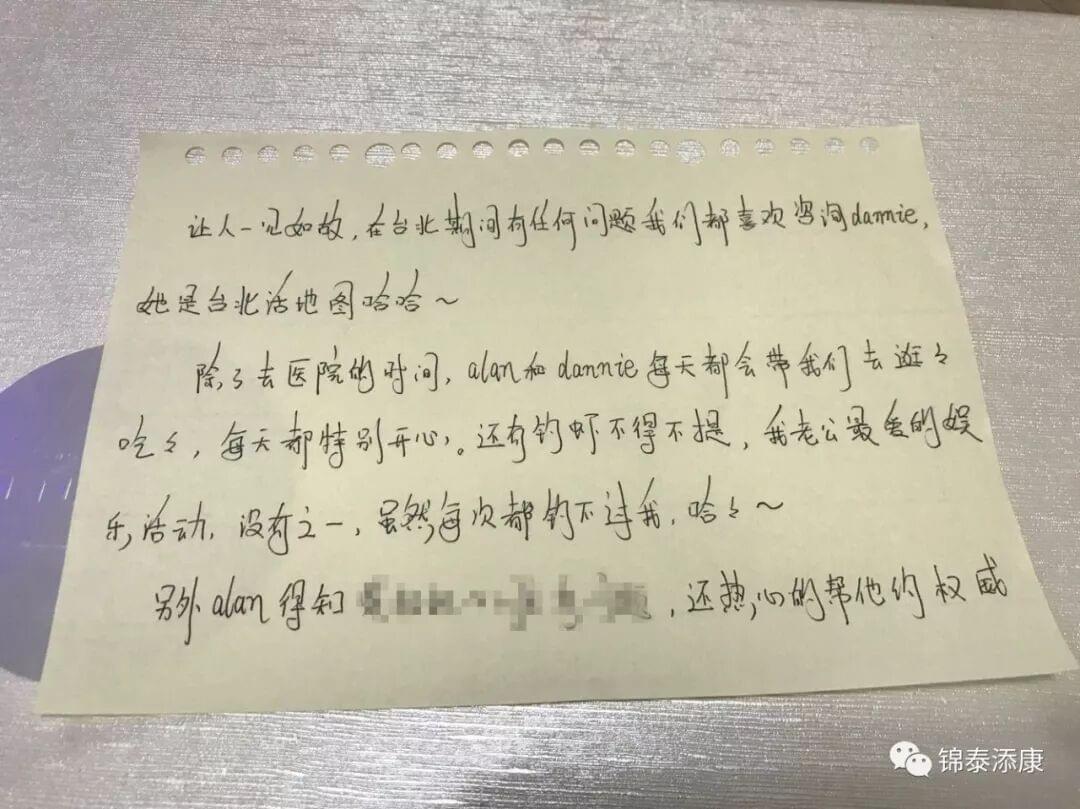 让人一见如故,在台北期间有任何问题我们都喜欢咨询dannie,
她是台北活地图哈哈~
除了去医院的时间,alan和dannie每天都会带我们去逛々
吃々,每天都特别开心。还有钓虾不得不提,我老公最爱的娱
乐活动,没有之一,虽然每次都钓不过我,哈々~
另外alan得知,还热心的帮他约权威
锦泰添康